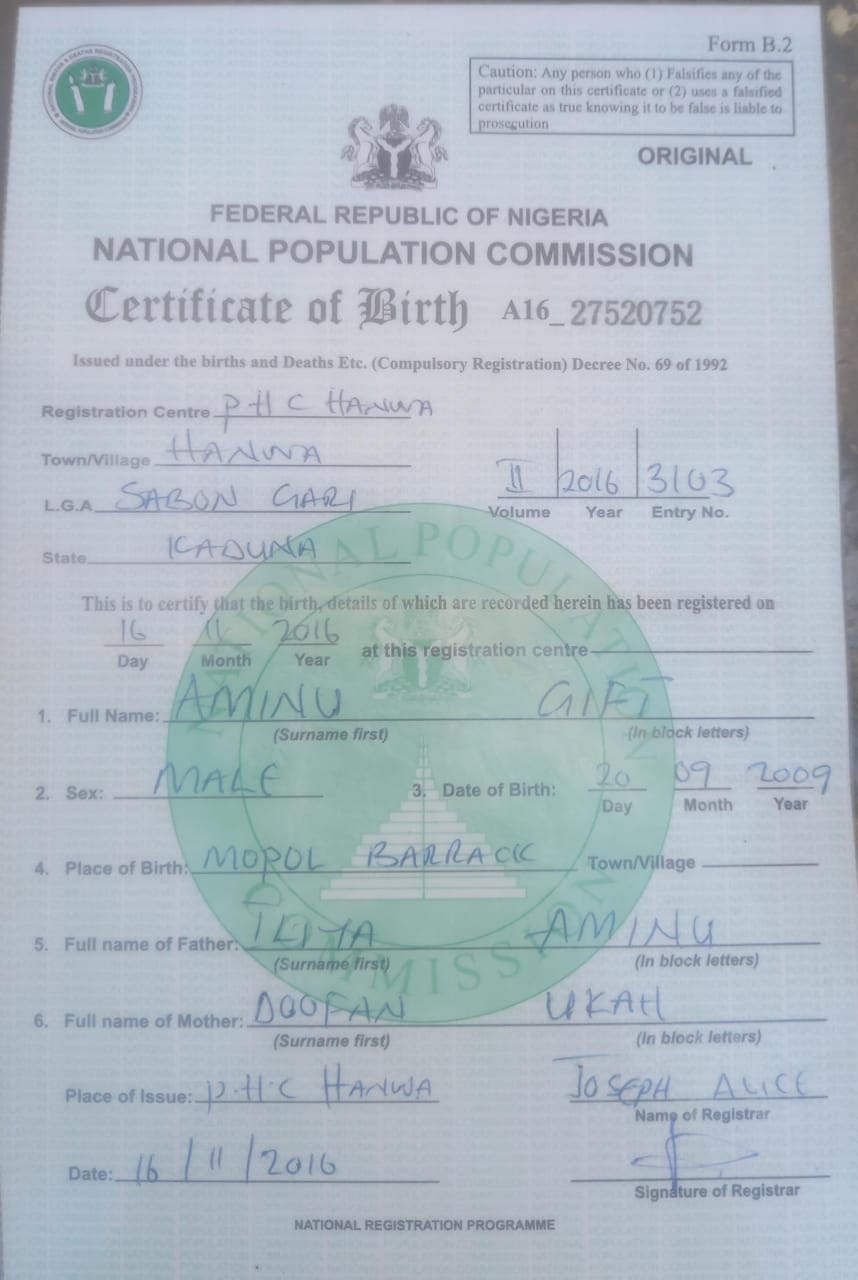 Form B.2
Caution: Any person who (1) Falsifies any of the
particular on this certificate or (2) uses a falsified
certificate as true knowing it to be false is liable to
prosecution
ORIGINAL
FEDERAL REPUBLIC OF NIGERIA
NATIONAL POPULATION COMMISSION
Certificate of Birth A16_27520752
Issued under the births and Deaths Etc. (Compulsory Registration) Decree No. 69 of 1992
Registration Centre PHC HANWA
Town/Village HANWA
L.G.A SABON GARI
II 2016 3103
Volume Year Entry No.
State KADUNA
NATIONAL POPULATION COMMISSION
This is to certify that the birth, details of which are recorded herein has been registered on
16 11 2016 at this registration centre
Day Month Year
1. Full Name: AMINU GIFT
(Surname first) (In block letters)
2. Sex: MALE 3. Date of Birth: 20 09 2009
Day Month Year
4. Place of Birth: MOPOL BARRACK Town/Village
5. Full name of Father: ILIYA AMINU
(Surname first) (In block letters)
6. Full name of Mother: DOOFAN UKAH
(Surname first) (In block letters)
Place of Issue: P.H.C HANWA JOSEPH ALICE
Name of Registrar
Date: 16/11/2016
Signature of Registrar
NATIONAL REGISTRATION PROGRAMME